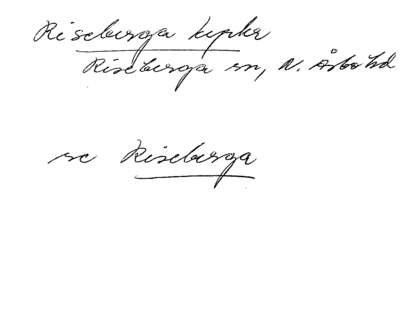 Riseberga kyrka
Riseberga sn, N. Åsbo hd
se Riseberga